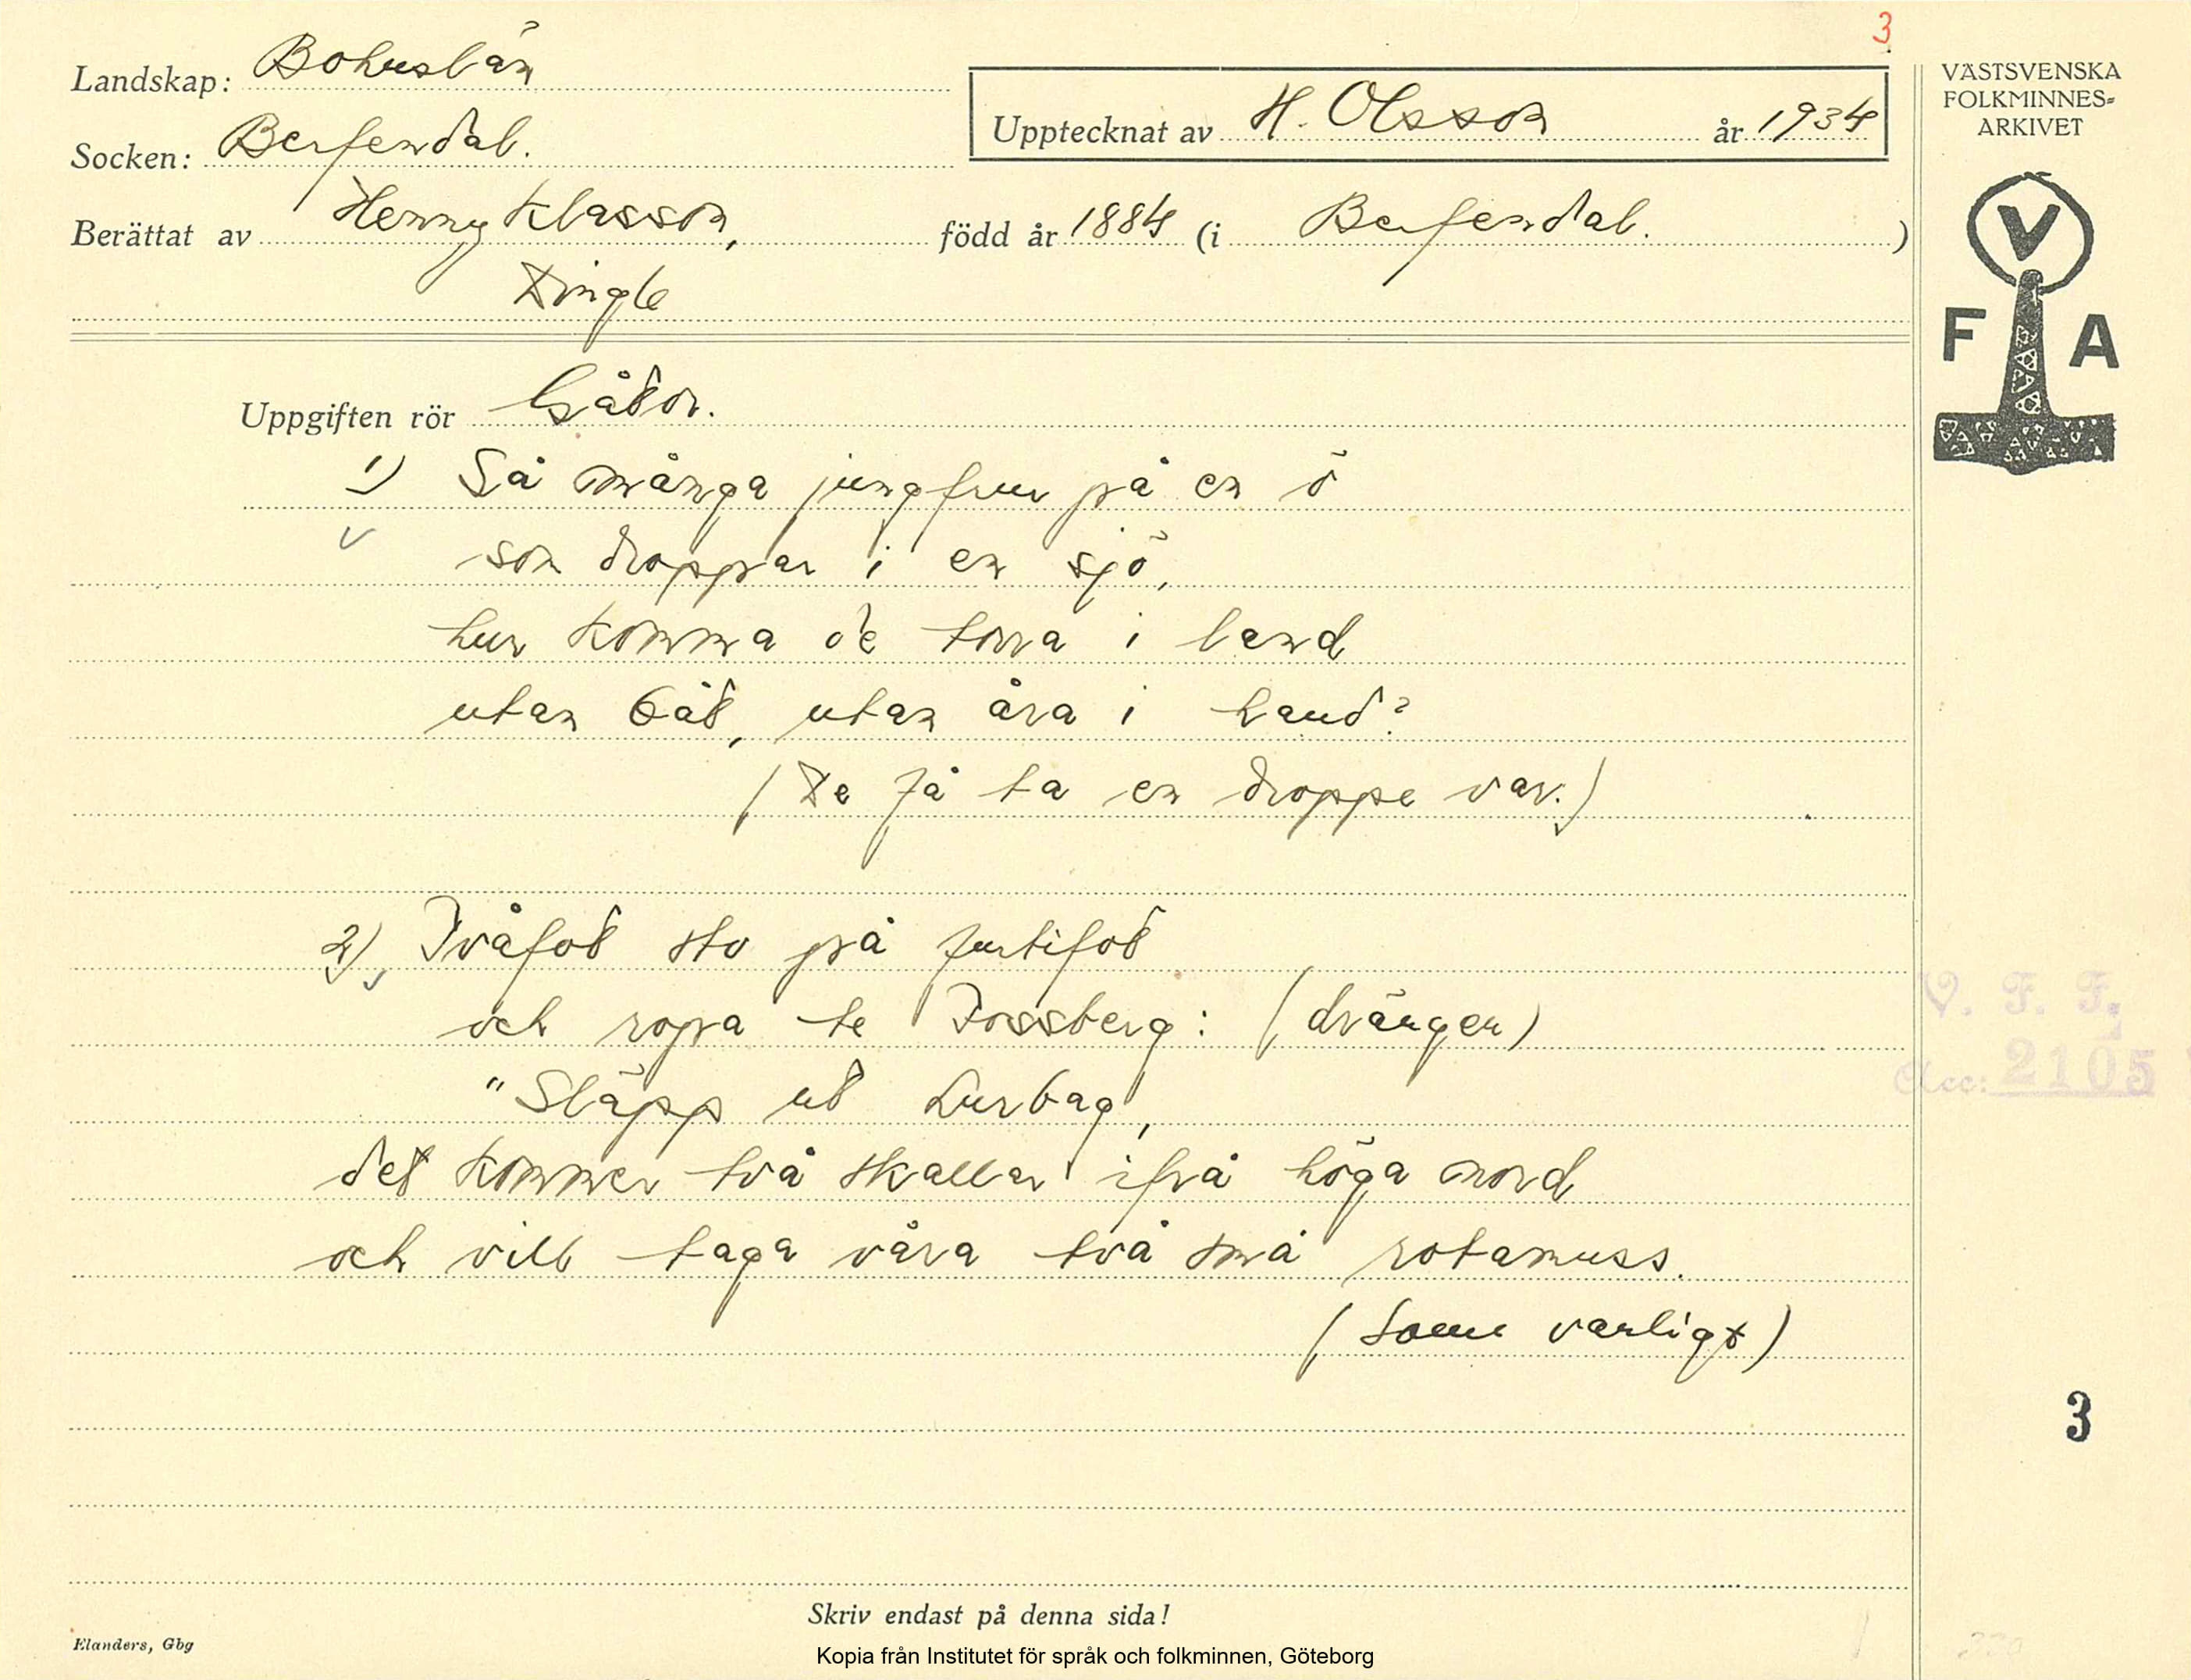 3
Landskap: Bohuslän
Socken: Berfendal.
Upptecknat av H. Olsson år 1934
Berättat av Henny Klasson, född år 1884 (i Berfendal.)
Dingle
VÄSTSVENSKA
FOLKMINNES-
ARKIVET
V
F A
Uppgiften rör Gåtor.
1) Så många jungfrur på en ö
som droppar i en sjö,
hur komma de torra i land
utan båt, utan åra i hand?
(De få ta en droppe var.)
2) Tvåfot sto på furtifot
och ropa te Tossberg: (dvärgen)
"Släpp ut Lurbag,
det kommer två skallar ifrå höga nord
och vill taga våra två små rotamuss.
(Som vanligt)
V. F. F.
Acc: 2105
3
Skriv endast på denna sida!
Elanders, Gbg
Kopia från Institutet för språk och folkminnen, Göteborg